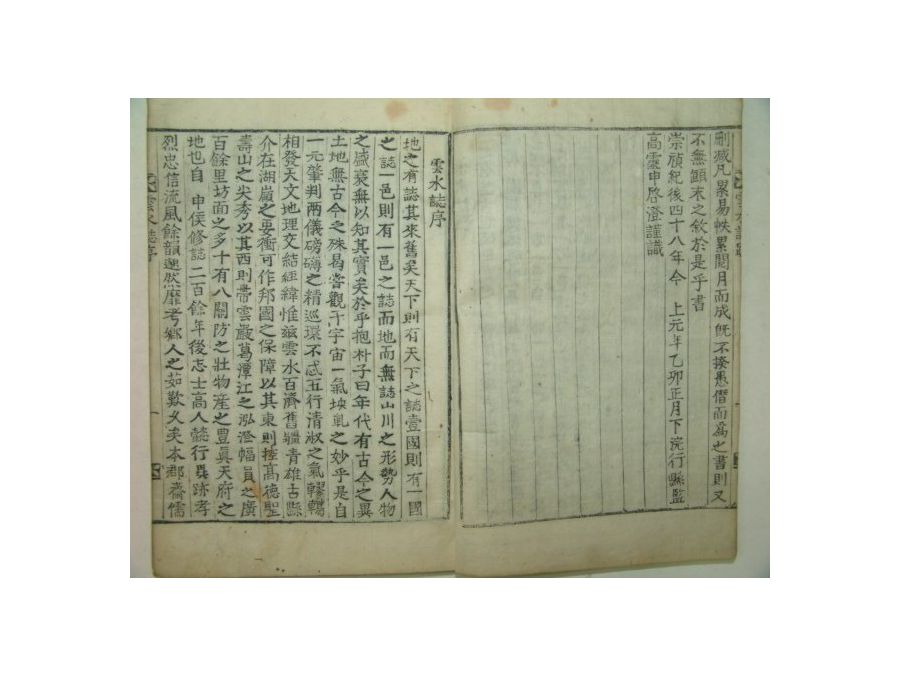 刪蔵凡累易帙累閱月而成旣不揆愚僭而爲之書則又
不無顚末之敘於是乎書
崇禎紀後四十八年今 上元年乙卯正月下浣行縣監
高靈申啓澄謹識
雲水誌序
地之有誌其來舊矣天下則有天下之誌壹國則有一國
之誌一邑則有一邑之誌而地而無誌山川之形勢人物
之盛衰無以知其實矣於乎抱朴子曰年代有古今之異
土地無古今之殊曷嘗觀于宇宙一氣坱軋之妙乎是自
一元肇判兩儀磅礴之精巡環不忒五行清淑之氣轇轕
相發天文地理文結經緯惟玆雲水百濟舊疆青雄古縣
介在湖嶺之要衝可作邦國之保障以其東則控高德聖
壽山之尖秀以其西則帶雲巖葛潭江之泓澄幅員之廣
百餘里坊面之多十有八關防之壯物産之豊眞天府之
地也自 申侯修誌二百餘年後志士高人懿行異跡孝
烈忠信流風餘韻邈然靡考鄉人之茹歎乂矣本郡齋儒
雲水誌序